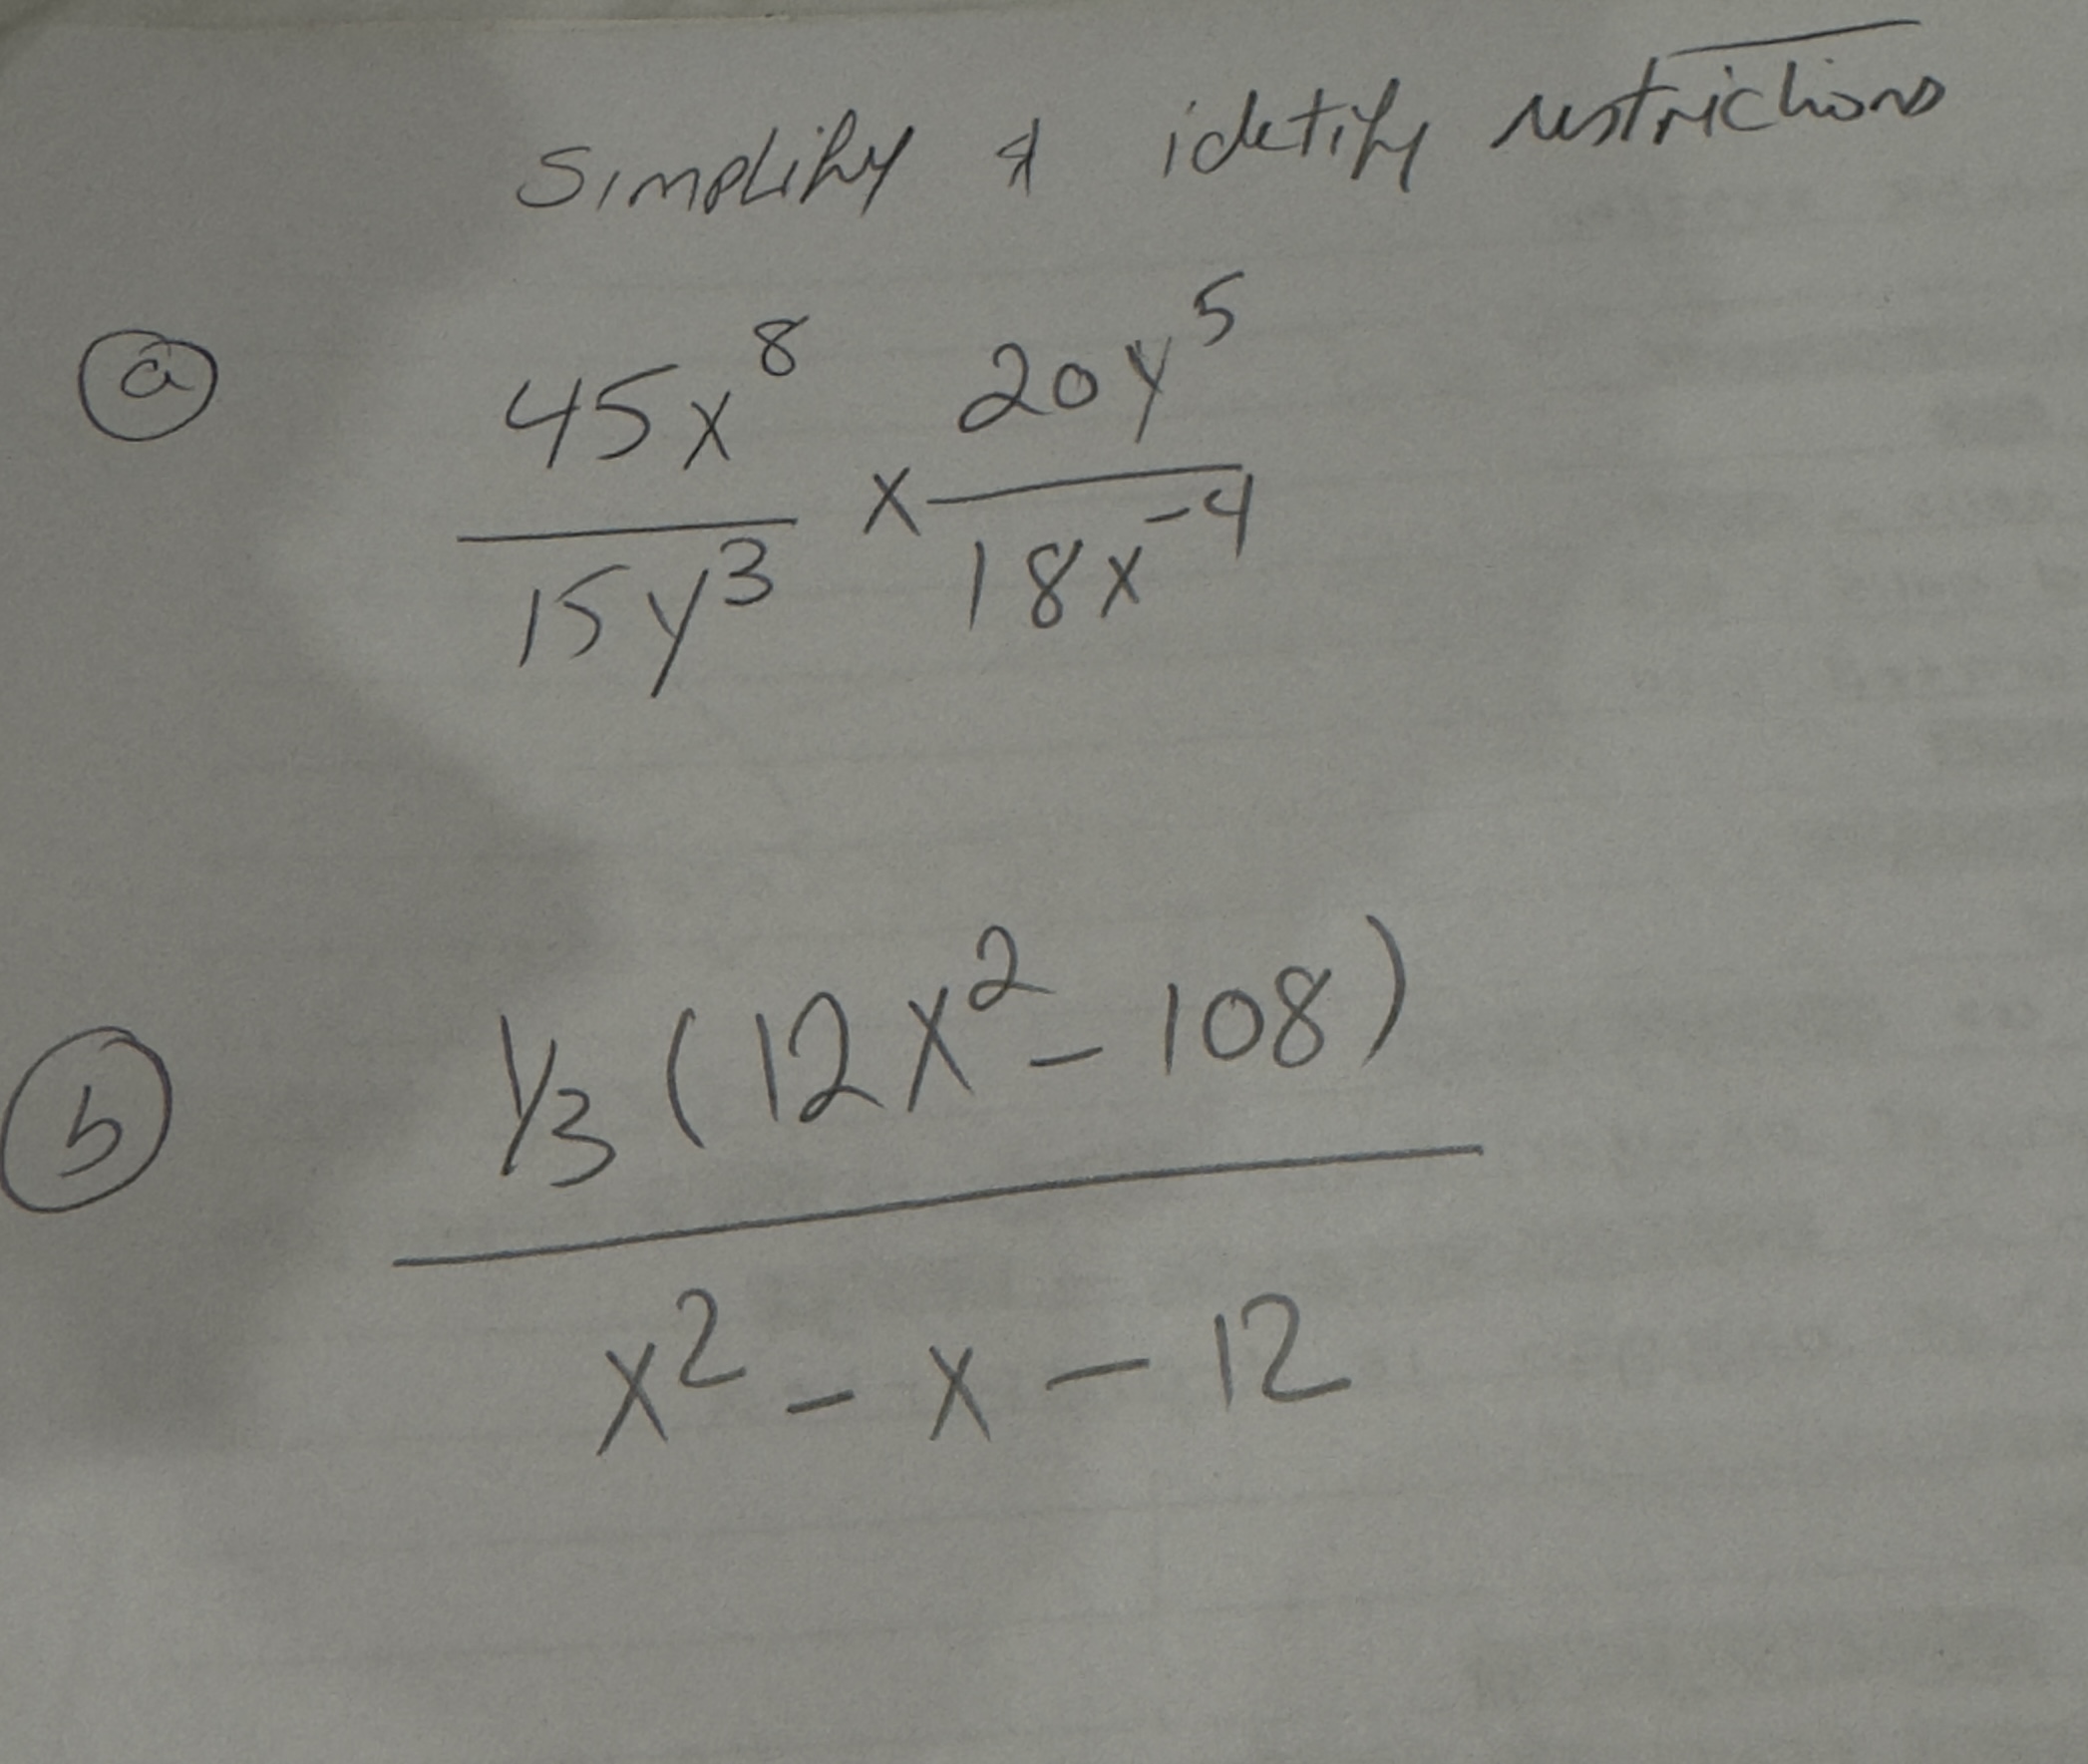 Simplify & idetify restrictions
a
45x⁸ / 15y³ x 20y⁵ / 18x⁻⁴
b
1/3 (12x² - 108)
x² - x - 12